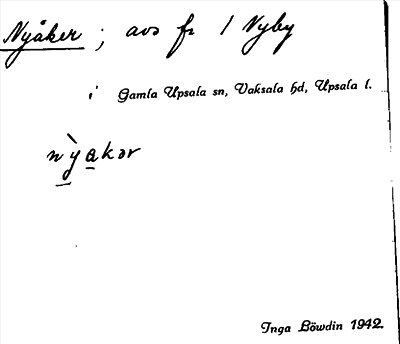 Nyåker ; avs fr 1 Nyby
i Gamla Upsala sn, Vaksala hd, Upsala l.
nỳakər
Inga Löwdin 1942.